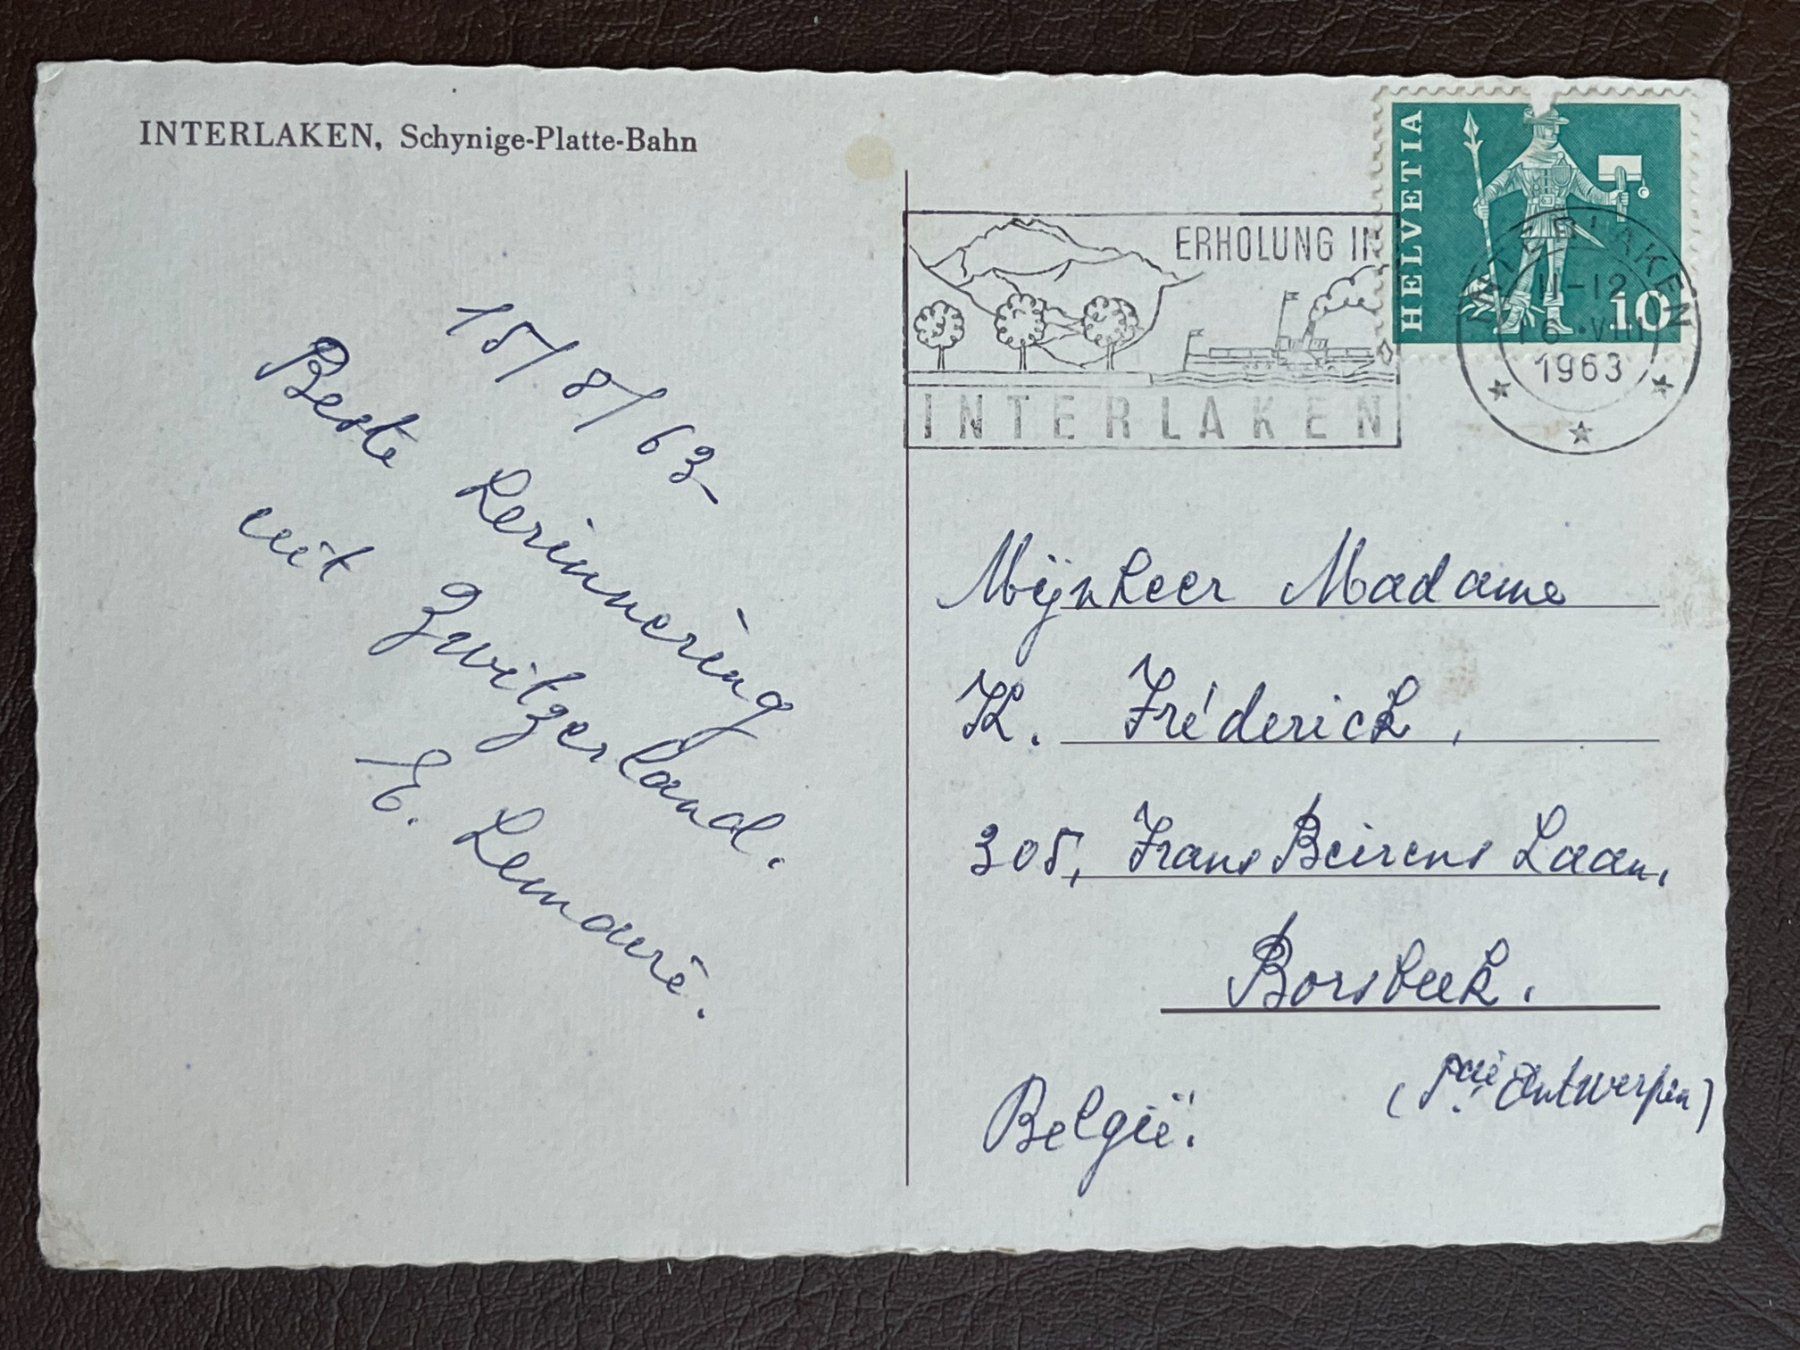 INTERLAKEN, Schynige-Platte-Bahn
15/8/63
Beste herinnering
uit Zwitzerland.
E. Lemaire.
HELVETIA
10
ERHOLUNG IN
INTERLAKEN
INTERLAKEN
11-12
16.VIII
1963
Mijnheer Madame
K. Fréderick,
305, Frans Beirens Laan,
Borsbeek.
Antwerpen)
België.